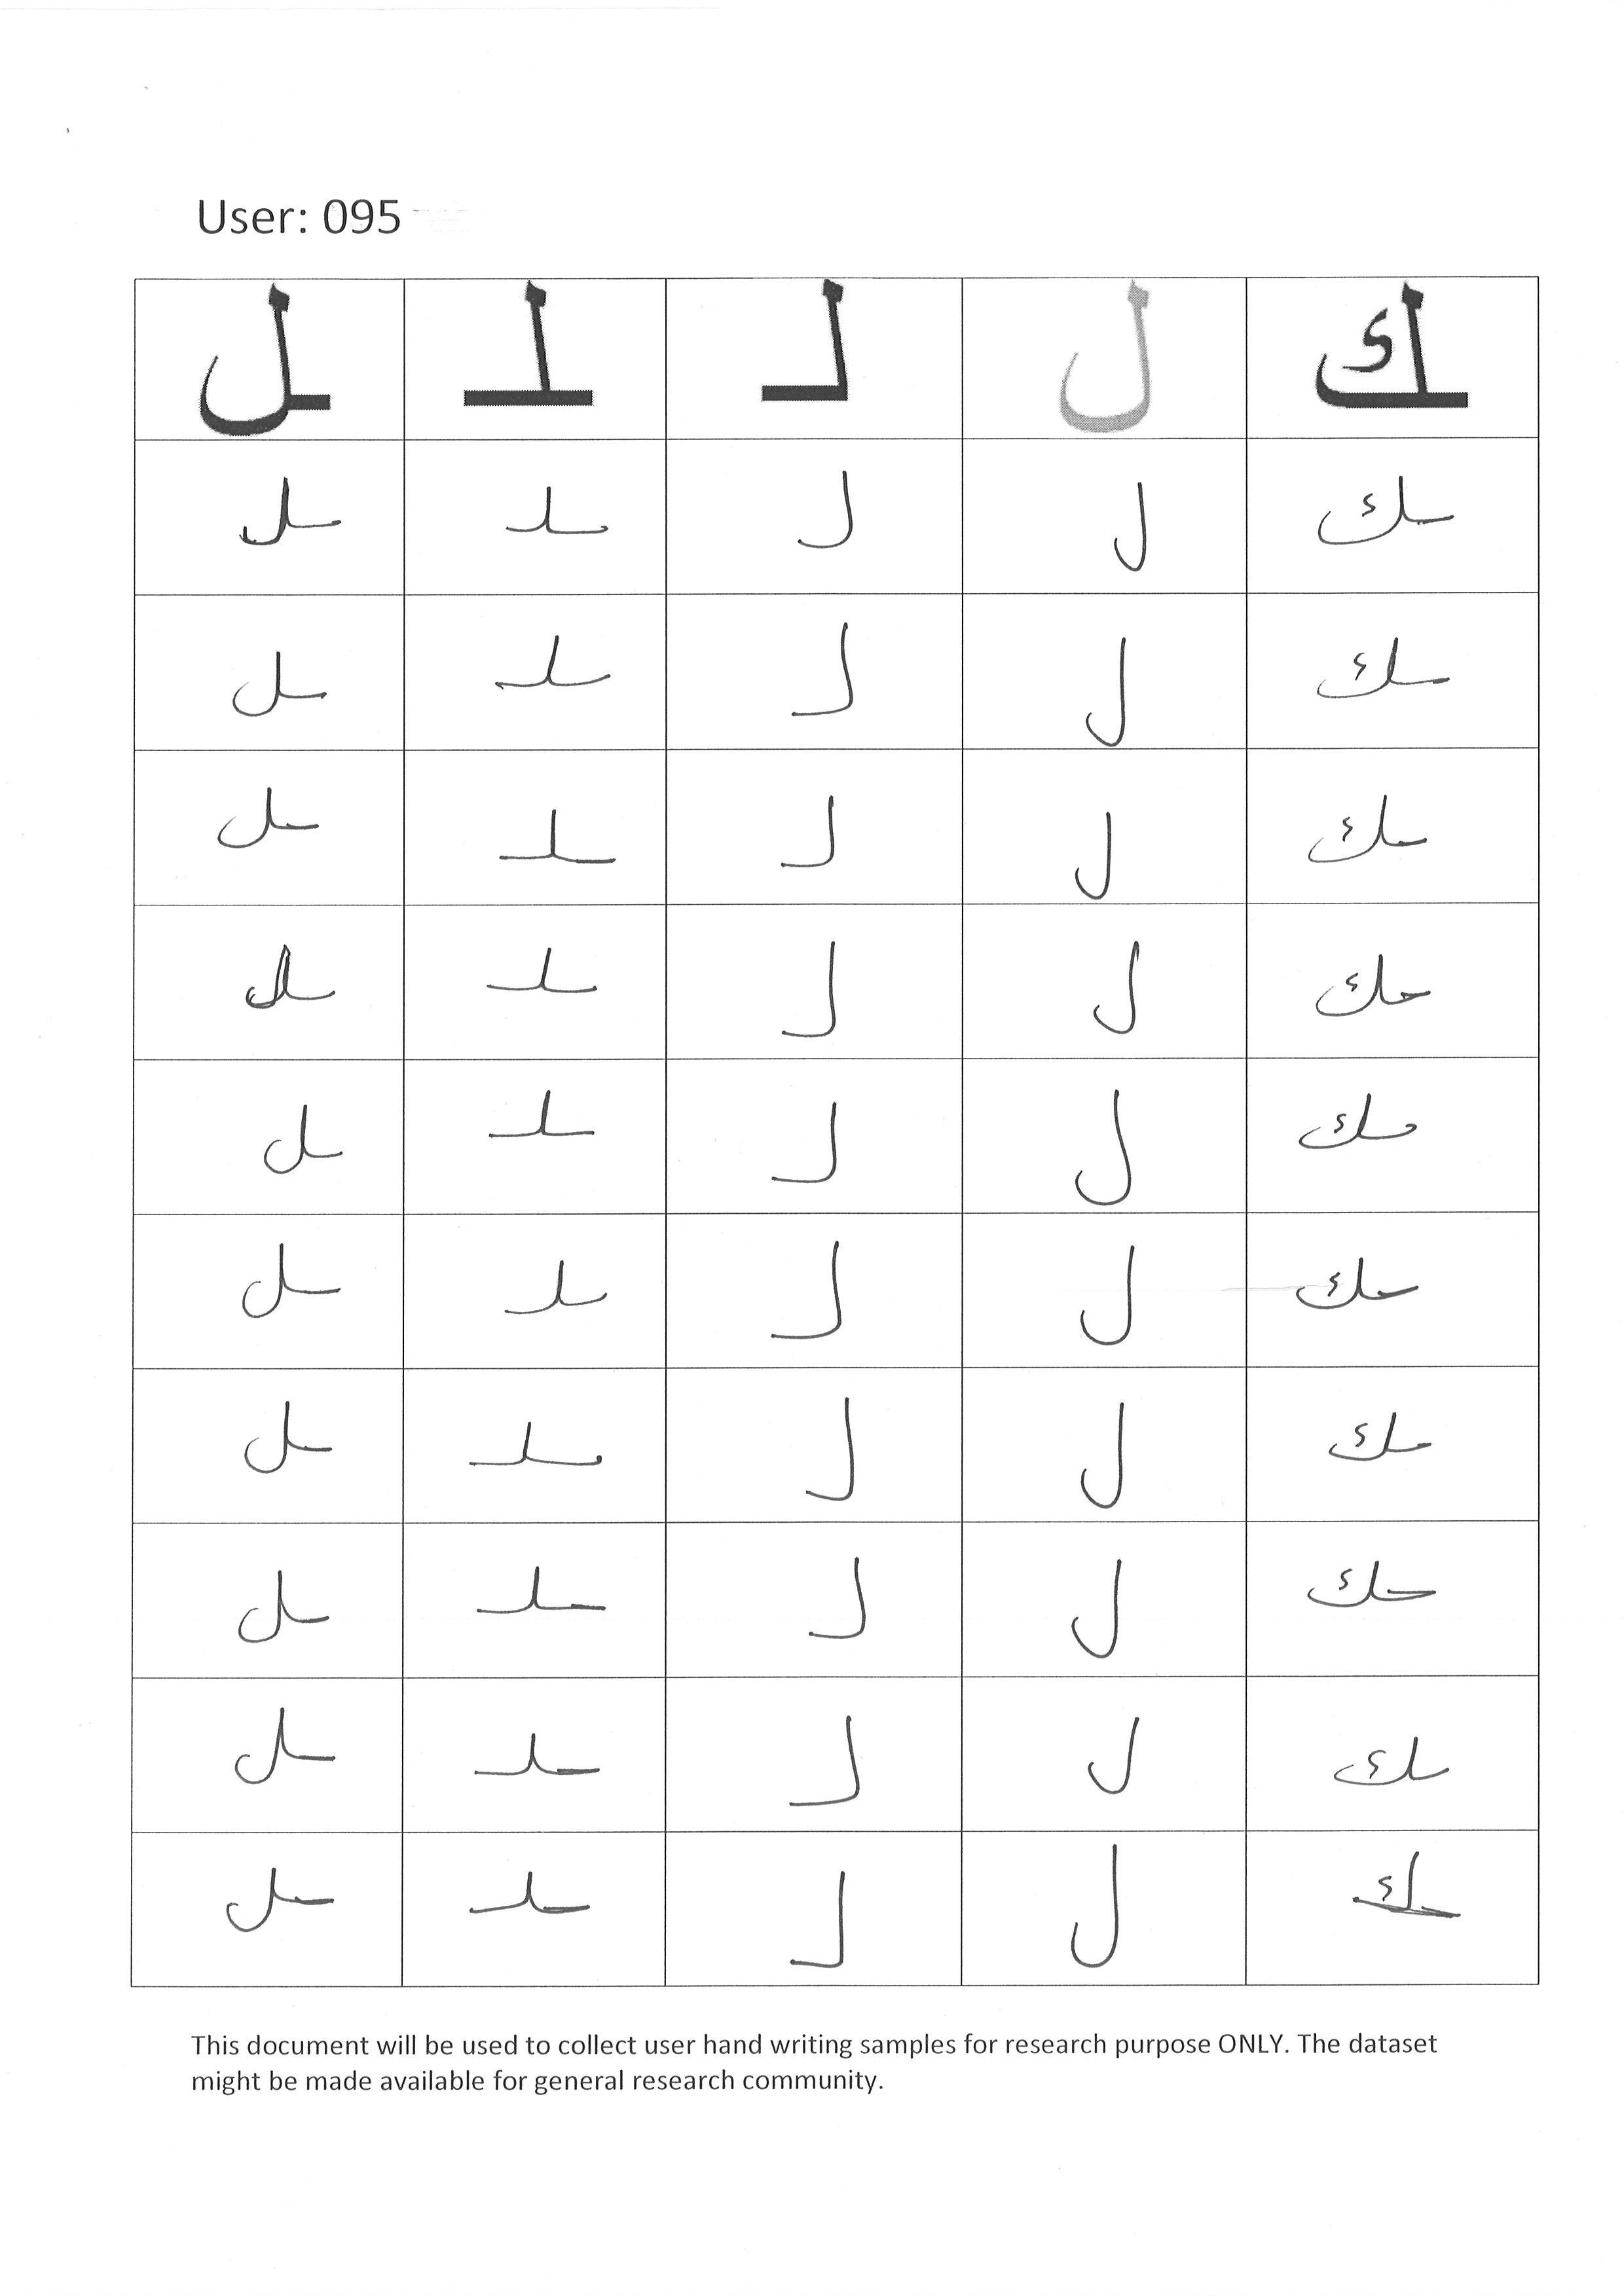 User: 095
ـك ل لـ ـلـ ـل
ـك ل لـ ـلـ ـل
ـك ل لـ ـلـ ـل
ـك ل لـ ـلـ ـل
ـك ل لـ ـلـ ـل
ـك ل لـ ـلـ ـل
ـك ل لـ ـلـ ـل
ـك ل لـ ـلـ ـل
ـك ل لـ ـلـ ـل
ـك ل لـ ـلـ ـل
ـك ل لـ ـلـ ـل
This document will be used to collect user hand writing samples for research purpose ONLY. The dataset
might be made available for general research community.